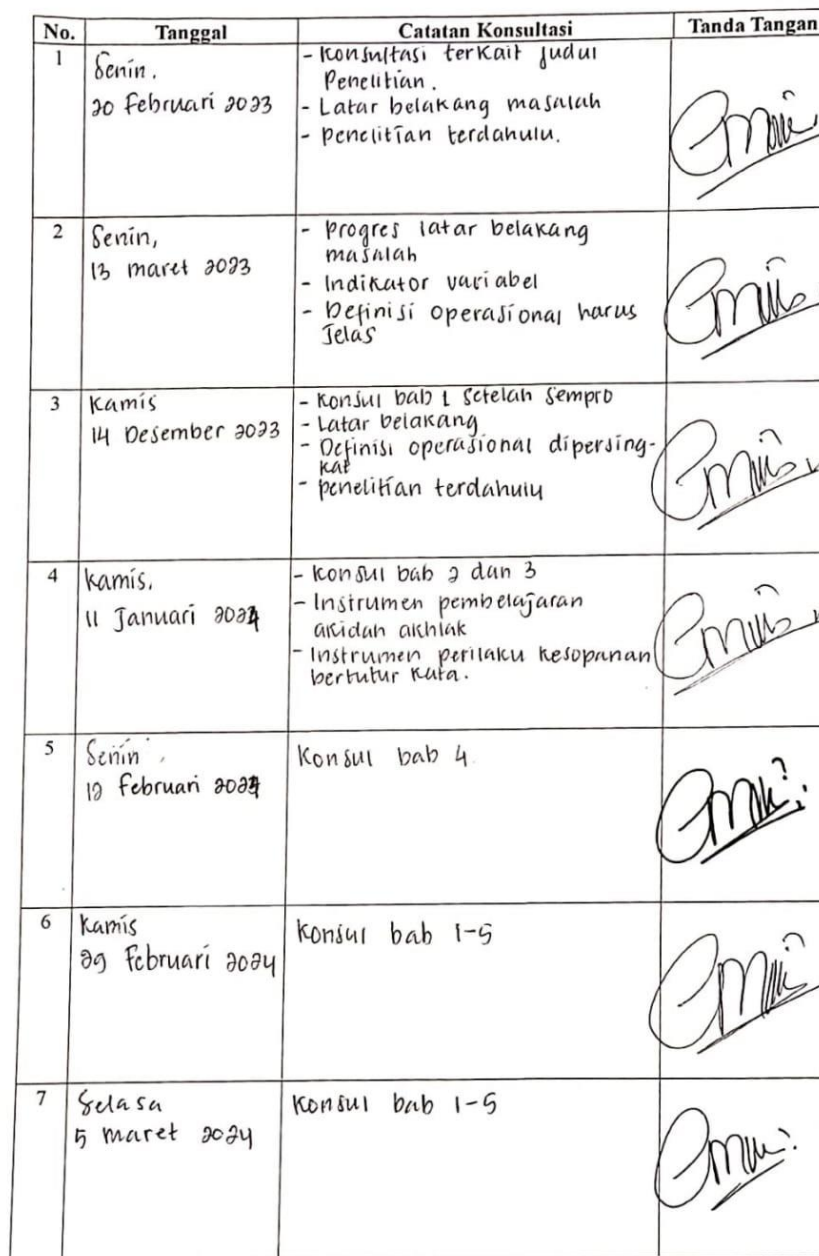 No. Tanggal Catatan Konsultasi Tanda Tangan
1 Senin,
20 Februari 2023
- Konsultasi terkait judul
Penelitian.
- Latar belakang masalah
- penelitian terdahulu.
2 Senin,
13 maret 2023
- Progres latar belakang
masalah
- Indikator variabel
- Definisi operasional harus
Jelas
3 Kamis
14 Desember 2023
- Konsul bab 1 setelah Sempro
- Latar belakang
- Definisi operasional dipersing-
kat
- penelitian terdahulu
4 Kamis,
11 Januari 2024
- Konsul bab 2 dan 3
- Instrumen pembelajaran
akidah akhlak
- Instrumen perilaku kesopanan
bertutur kata.
5 Senin,
12 Februari 2024
Konsul bab 4
6 Kamis
29 Februari 2024
Konsul bab 1-5
7 Selasa
5 maret 2024
Konsul bab 1-5